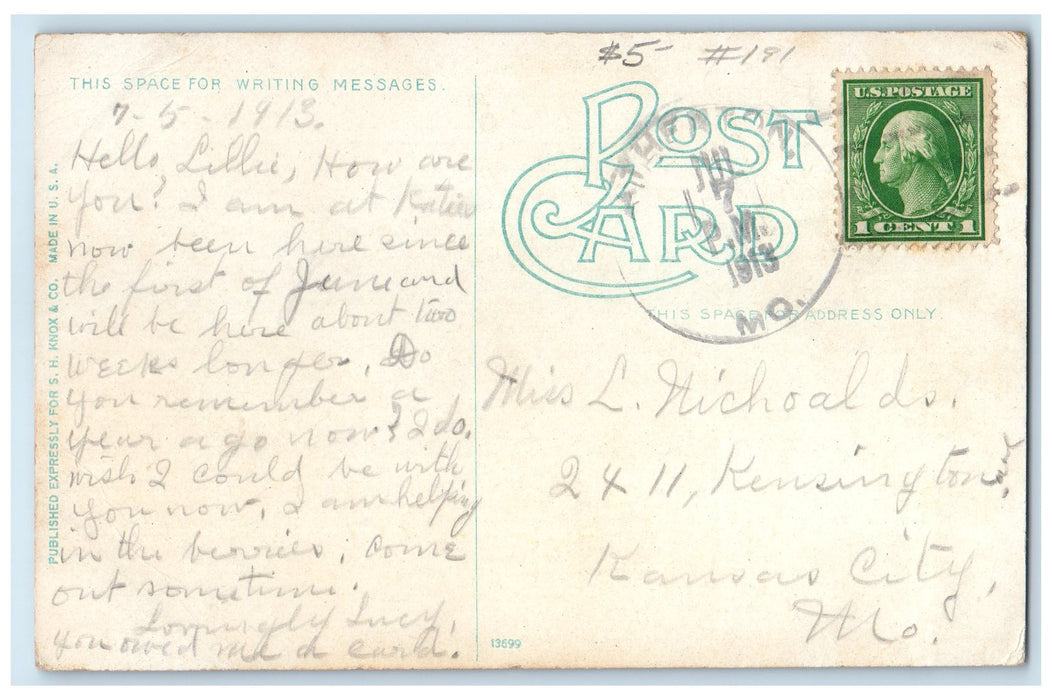 $5- #191
THIS SPACE FOR WRITING MESSAGES.
7-5-1913.
Hello, Lillie, How are
you? I am at Katies
now been here since
the first of June and
will be here about two
weeks longer, Do
you remember a
year ago now? I do.
wish I could be with
you now, I am helping
in the berries, come
out sometime.
Lovingly Lucy,
you owed me a card.
PUBLISHED EXPRESSLY FOR S. H. KNOX & CO. MADE IN U. S. A.
POST CARD
JUL
7
P.M.
1913
MO.
U.S. POSTAGE
1 CENT 1
THIS SPACE FOR ADDRESS ONLY.
Miss L. Nichoalds.
2411, Kensington,
Kansas City,
Mo.
13699